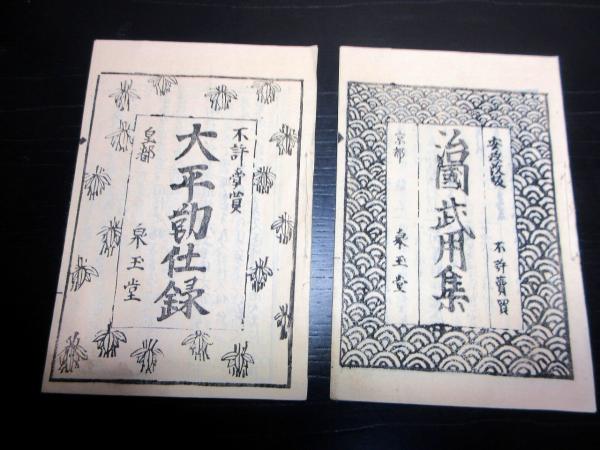 安政改板
不許賣買
治國武用集
京都
泉玉堂
不許賣買
大平勤仕録
皇都
泉玉堂